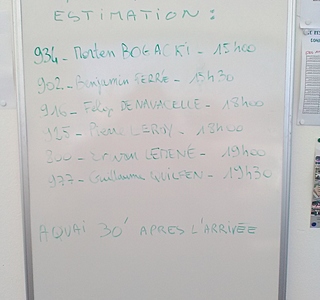 ESTIMATION :
934 - Morten BOGACKI - 15h00
902 - Benjamin FERRÉ - 15h30
916 - DENAVACELLE - 18h00
925 - Pierre LEROY - 18h00
LEDENÉ - 19h00
977 - Guillaume QUILFEN - 19h30
A QUAI 30' APRES L'ARRIVÉE